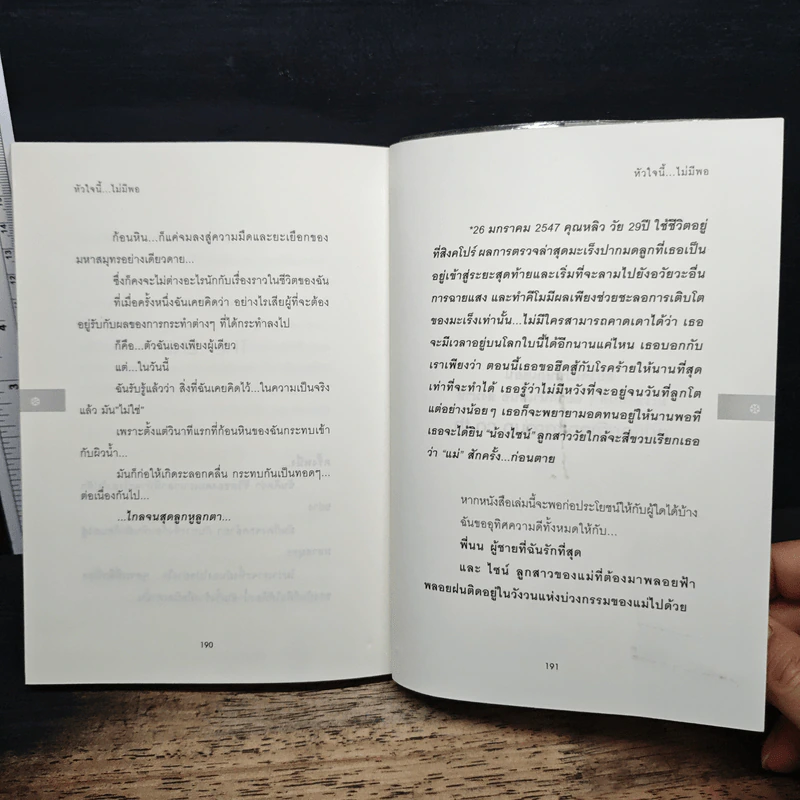 หัวใจนี้...ไม่มีพอ
ก้อนหิน...ก็แค่จมลงสู่ความมืดและยะเยือกของ
มหาสมุทรอย่างเดียวดาย...
ซึ่งก็คงจะไม่ต่างอะไรนักกับเรื่องราวในชีวิตของฉัน
ที่เมื่อครั้งหนึ่งฉันเคยคิดว่า อย่างไรเสียผู้ที่จะต้อง
อยู่รับกับผลของการกระทำต่างๆ ที่ได้กระทำลงไป
ก็คือ...ตัวฉันเองเพียงผู้เดียว
แต่...ในวันนี้
ฉันรับรู้แล้วว่า สิ่งที่ฉันเคยคิดไว้...ในความเป็นจริง
แล้ว มัน"ไม่ใช่"
เพราะตั้งแต่วินาทีแรกที่ก้อนหินของฉันกระทบเข้า
กับผิวน้ำ...
มันก็ก่อให้เกิดระลอกคลื่น กระทบกันเป็นทอดๆ...
ต่อเนื่องกันไป...
...ไกลจนสุดลูกหูลูกตา...
190
หัวใจนี้...ไม่มีพอ
"26 มกราคม 2547 คุณหลิว วัย 29ปี ใช้ชีวิตอยู่
ที่สิงคโปร์ ผลการตรวจล่าสุดมะเร็งปากมดลูกที่เธอเป็น
อยู่เข้าสู่ระยะสุดท้ายและเริ่มที่จะลามไปยังอวัยวะอื่น
การฉายแสง และทำคีโมมีผลเพียงช่วยชะลอการเติบโต
ของมะเร็งเท่านั้น...ไม่มีใครสามารถคาดเดาได้ว่า เธอ
จะมีเวลาอยู่บนโลกใบนี้ได้อีกนานแค่ไหน เธอบอกกับ
เราเพียงว่า ตอนนี้เธอขอฮึดสู้กับโรคร้ายให้นานที่สุด
เท่าที่จะทำได้ เธอรู้ว่าไม่มีหวังที่จะอยู่จนวันที่ลูกโต
แต่อย่างน้อยๆ เธอก็จะพยายามอดทนอยู่ให้นานพอที่
เธอจะได้ยิน "น้องไซน์" ลูกสาววัยใกล้จะสี่ขวบเรียกเธอ
ว่า "แม่" สักครั้ง...ก่อนตาย
หากหนังสือเล่มนี้จะพอก่อประโยชน์ให้กับผู้ใดได้บ้าง
ฉันขออุทิศความดีทั้งหมดให้กับ...
พี่นน ผู้ชายที่ฉันรักที่สุด
และ ไซน์ ลูกสาวของแม่ที่ต้องมาพลอยฟ้า
พลอยฝนติดอยู่ในวังวนแห่งบ่วงกรรมของแม่ไปด้วย
191